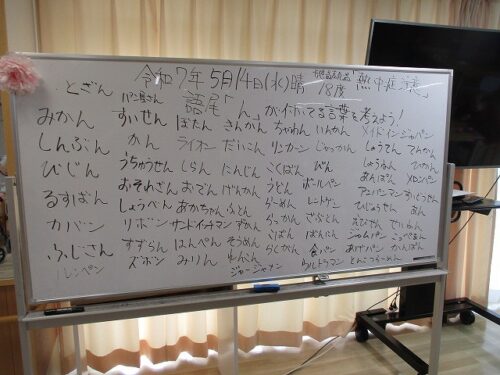 令和7年5月14日(水)晴 18度 「熱中症注意」
語尾「ん」が付いてる言葉を考えよう!
とざん パン屋さん
みかん すいせん ぼたん きんかん ちゃわん いんかん メイドインジャパン
しんぶん かん ライオン だいこん リンカーン じゅうかん しょうてん てんかん
びじん うちゅうせん しらん にんじん こくばん びん しょうねん
るすばん おそれざん おでん げんかん うどん ボールペン あんぱん メロンパン
カバン しょうべん あかちゃん ふとん らーめん レントゲン アンパンマン すいとうせん
ふじさん リボン サンドイッチマン ずかん らっかん ざぶとん びじゅせん あん
レンペン すずらん はんぺん そうめん こばん ばんにん えびせん
ズボン みりん れんこん らしんばん 食パン ジャムパン こっぺぱん
ジャージャアン ウルトラマン とんこつらーめん あげパン かんぱん